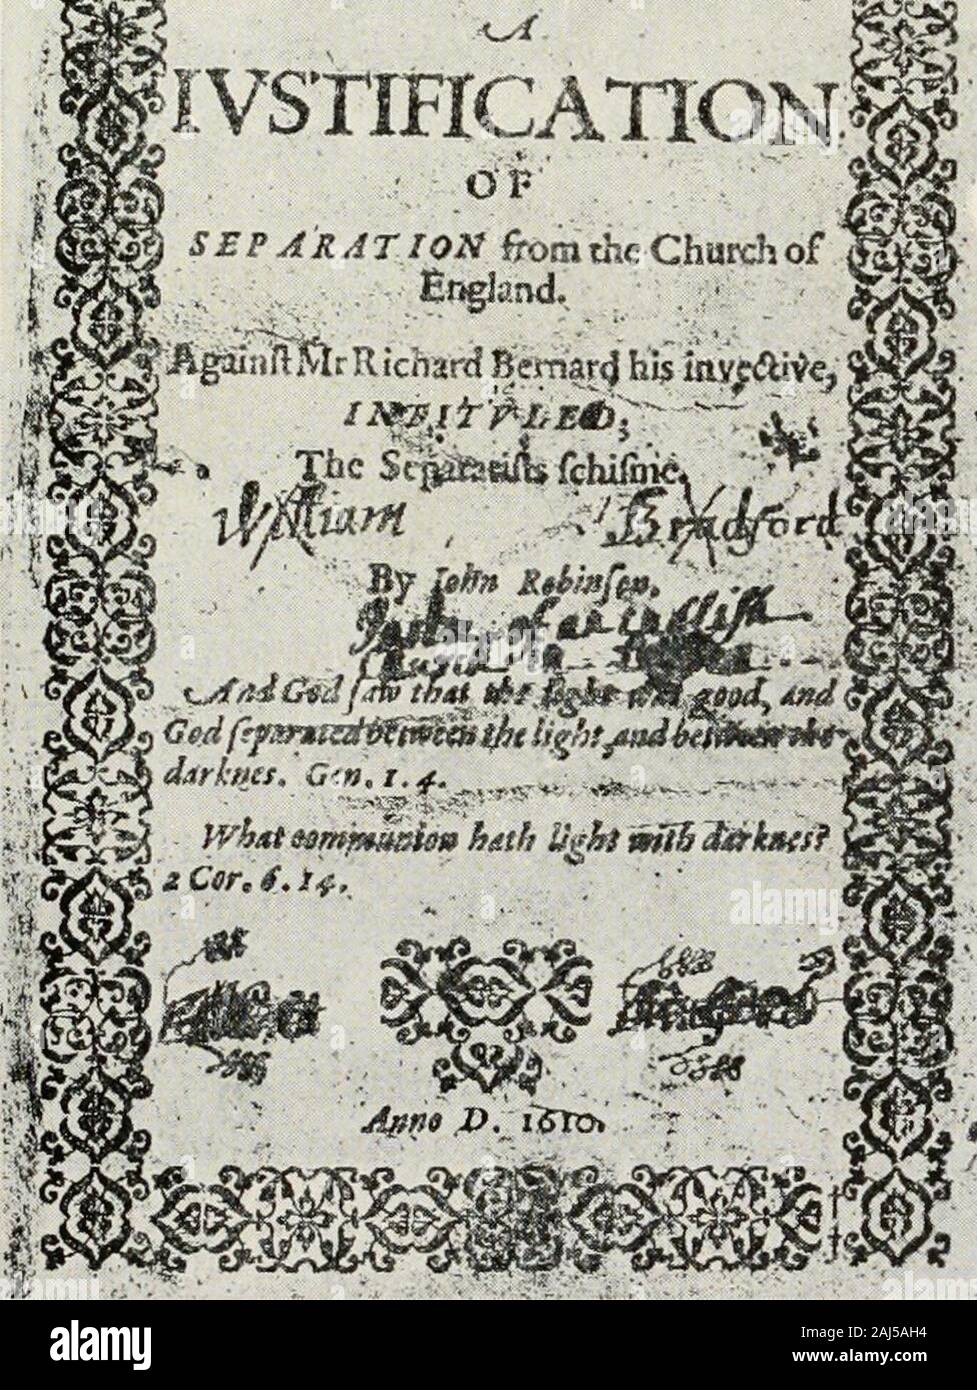 A
IVSTIFICATION
OF
SEPARATION from the Church of
England.
Againſt Mr Richard Bernard his invective,
INTITVLED;
The Separatiſts ſchiſme.
William Bradford
By Iohn Robinſon.
of an Engliſh
And God ſaw that the light was good, and
God ſeparated between the light, and between the
darknes. Gen. 1. 4.
What communion hath light with darknes?
2 Cor. 6. 14.
Anno D. 1610.
alamy
Image ID: 2AJ5AH4
www.alamy.com